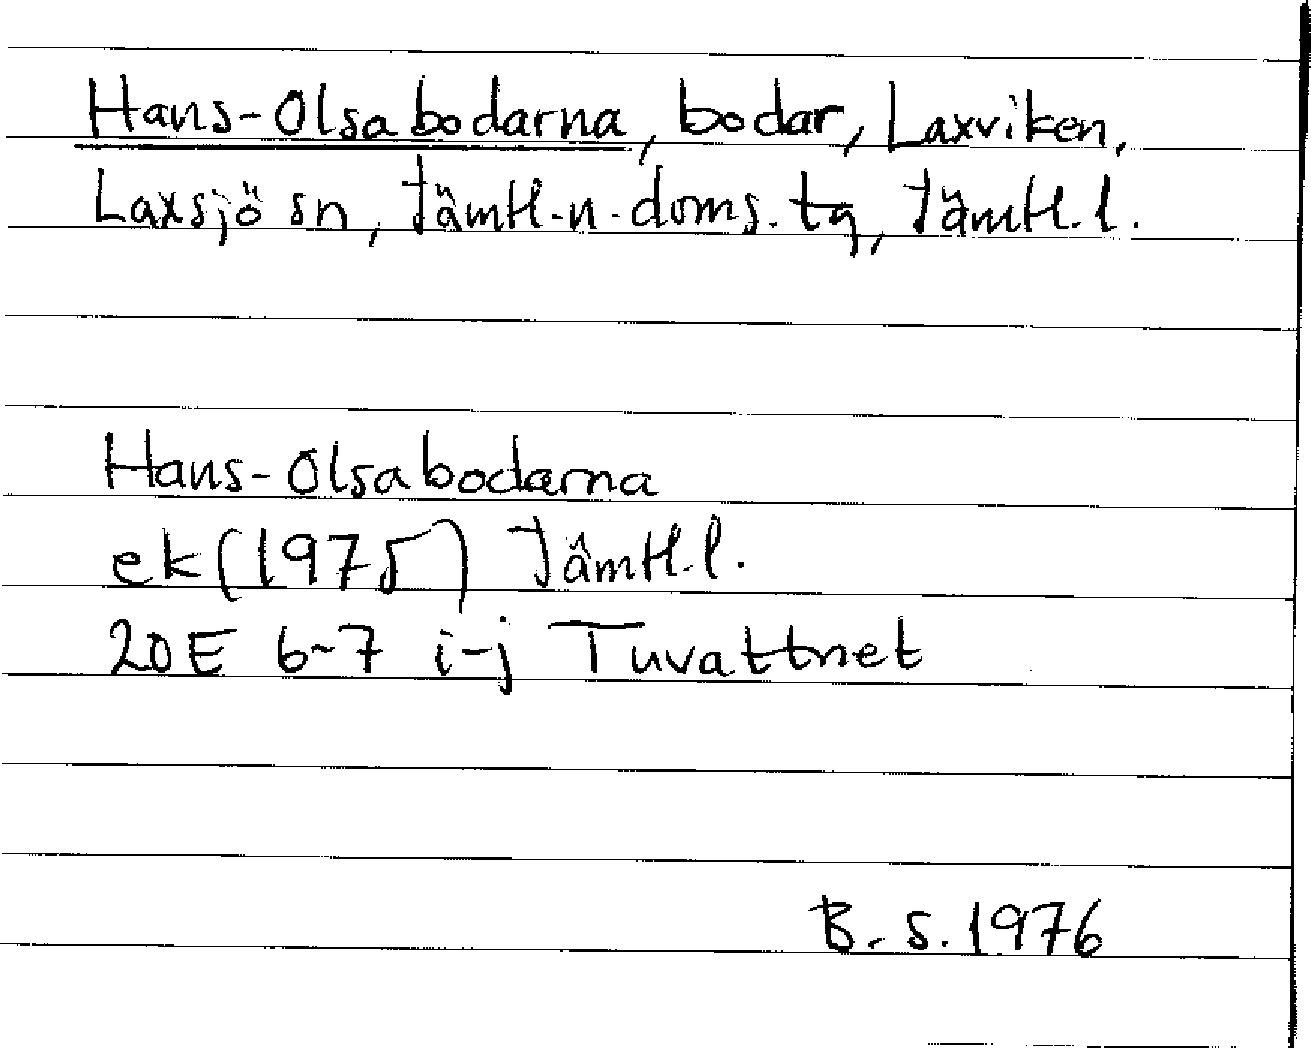 Hans-Olsabodarna, bodar, Laxviken,
Laxsjö sn, Jämtl.n.doms.tg, Jämtl.l.
Hans-Olsabodarna
ek (1975) Jämtl.l.
20E 6-7 i-j Tuvattnet
B.S. 1976